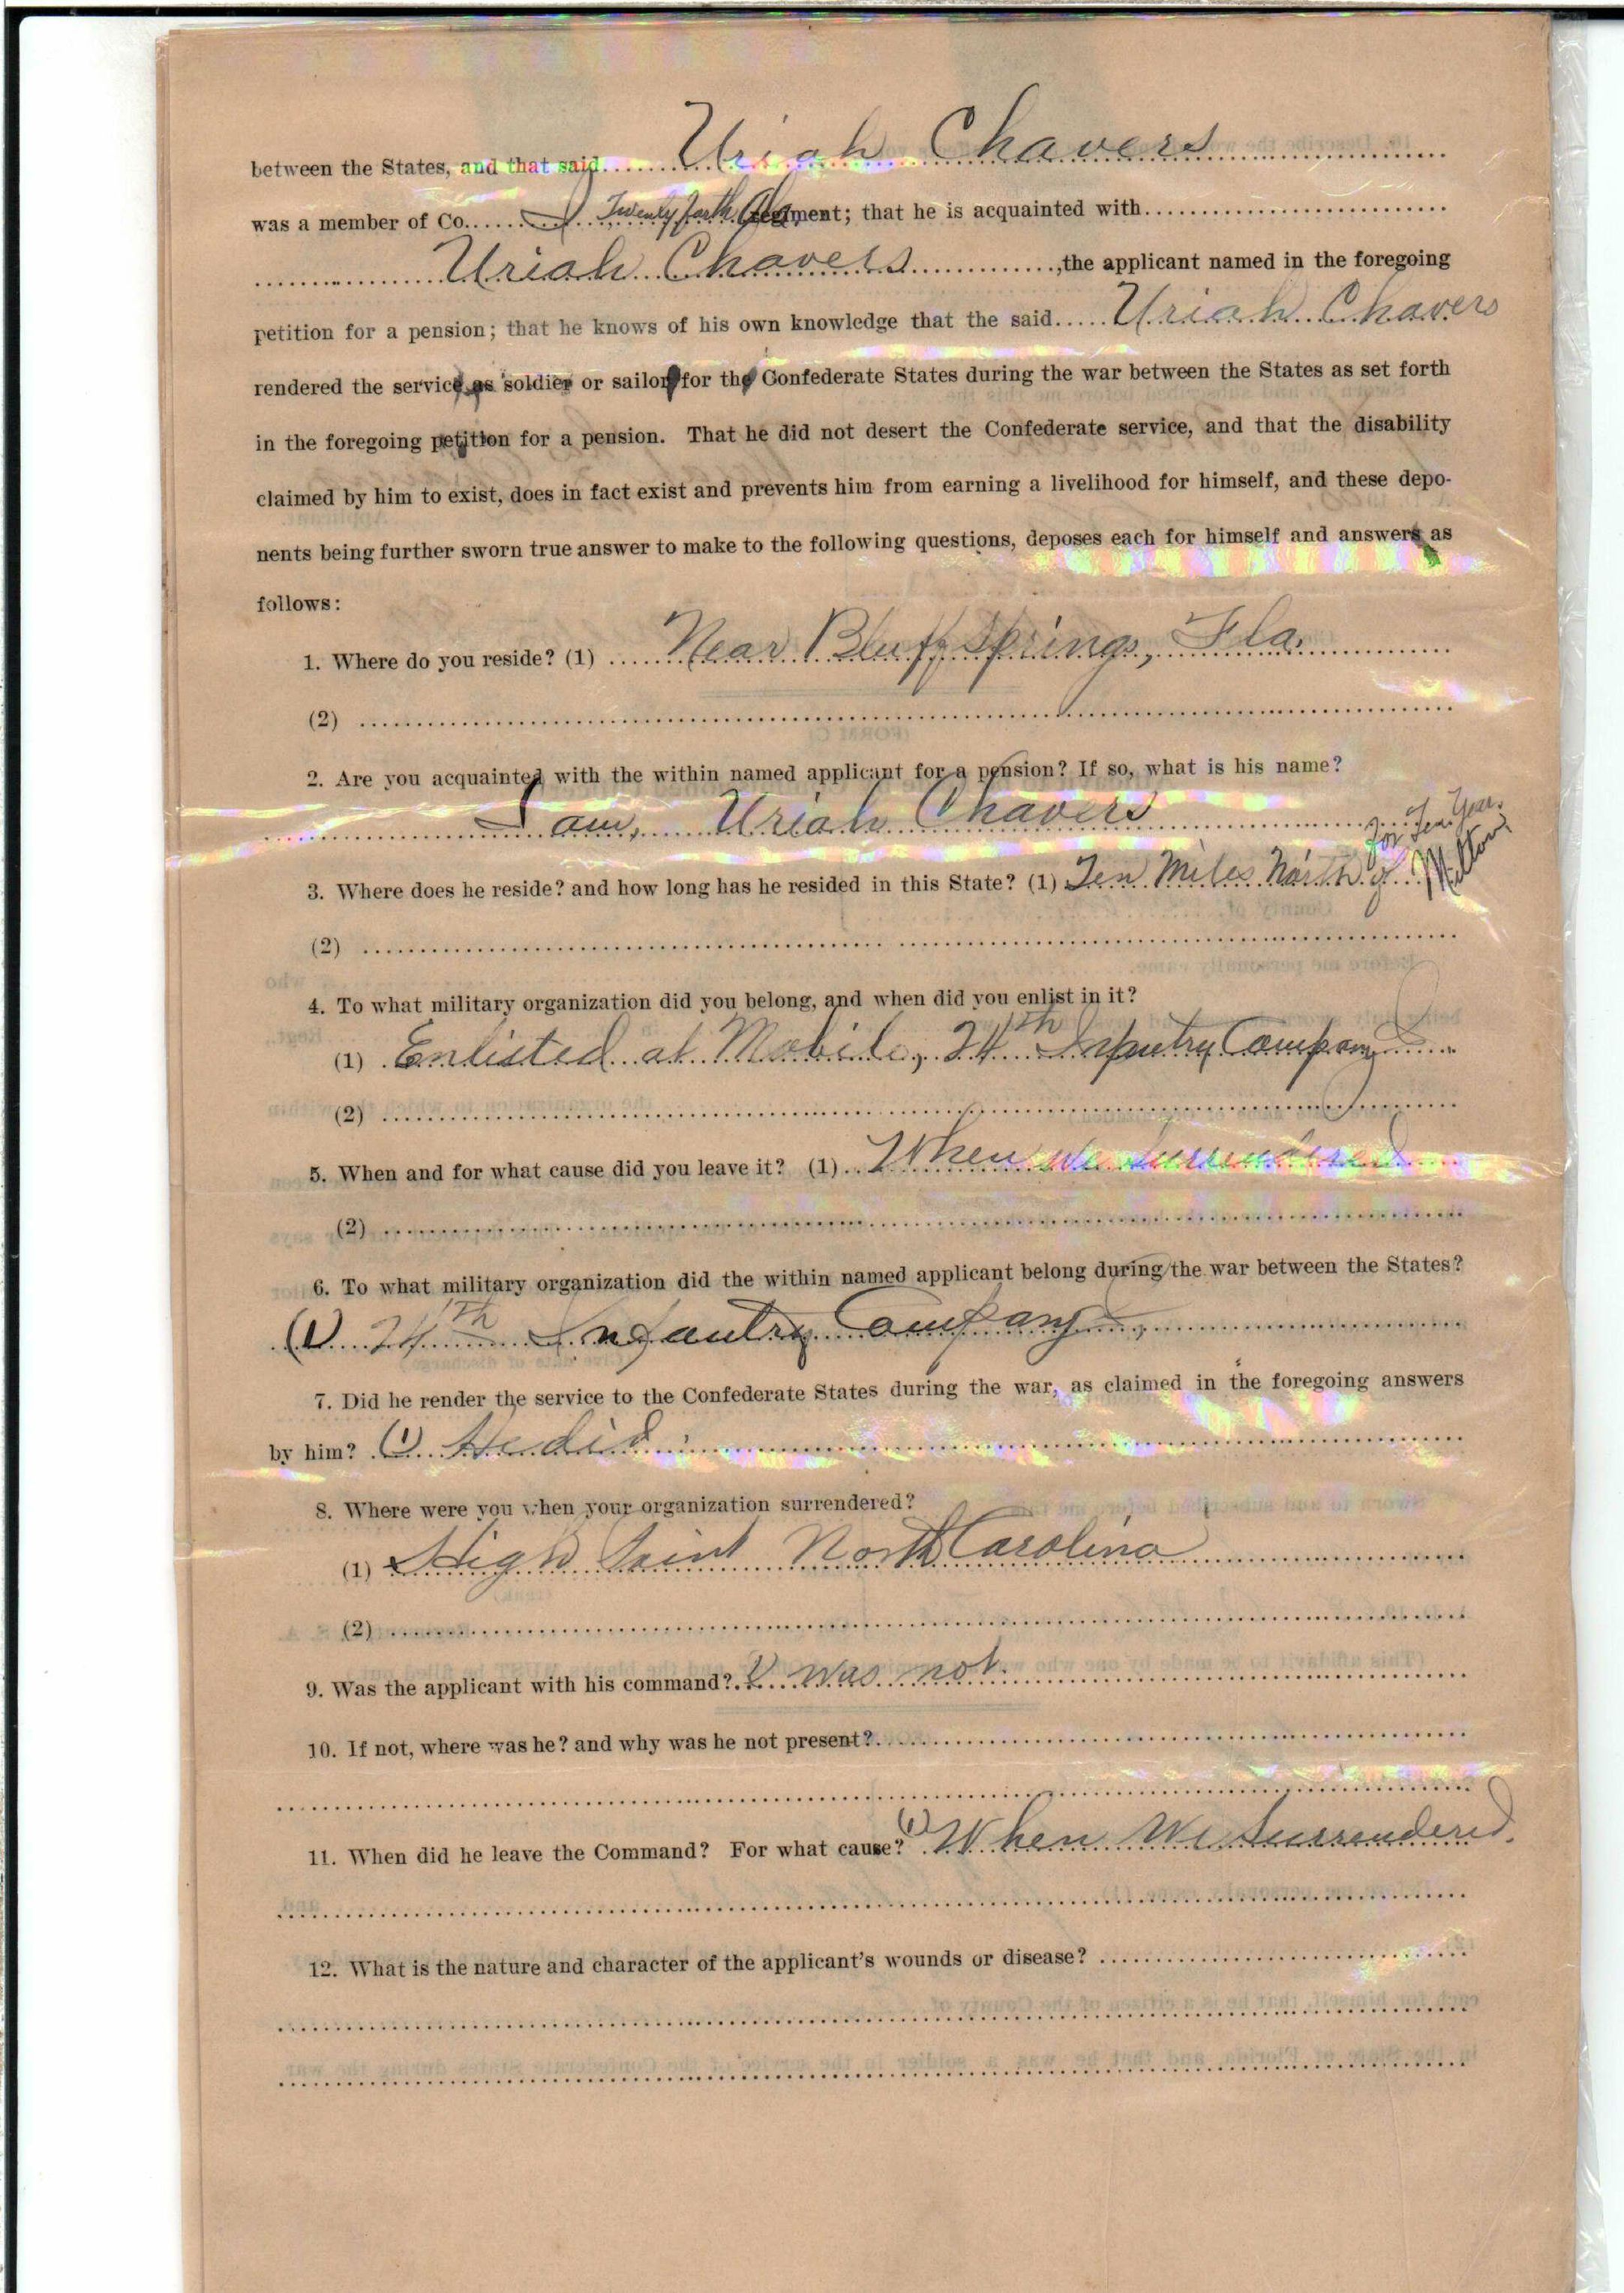 between the States, and that said Uriah Chavers
was a member of Co. Twenty forth Ala regiment; that he is acquainted with
Uriah Chavers, the applicant named in the foregoing
petition for a pension; that he knows of his own knowledge that the said Uriah Chavers
rendered the service as soldier or sailor for the Confederate States during the war between the States as set forth
in the foregoing petition for a pension. That he did not desert the Confederate service, and that the disability
claimed by him to exist, does in fact exist and prevents him from earning a livelihood for himself, and these depo-
nents being further sworn true answer to make to the following questions, deposes each for himself and answers as
follows:
1. Where do you reside? (1) Near Bluff Springs, Fla.
(2)
2. Are you acquainted with the within named applicant for a pension? If so, what is his name?
I am, Uriah Chavers
for Ten Years
3. Where does he reside? and how long has he resided in this State? (1) Ten Miles North of Milton,
(2)
4. To what military organization did you belong, and when did you enlist in it?
(1) Enlisted at Mobile, 24th Infantry Company
(2)
5. When and for what cause did you leave it? (1) When we surrendered
(2)
6. To what military organization did the within named applicant belong during the war between the States?
(1) 24th Infantry Company
7. Did he render the service to the Confederate States during the war, as claimed in the foregoing answers
by him? (1) He did
8. Where were you when your organization surrendered?
(1) High Point North Carolina
(2)
9. Was the applicant with his command? was not.
10. If not, where was he? and why was he not present?
11. When did he leave the Command? For what cause? (1) When We Surrendered.
12. What is the nature and character of the applicant's wounds or disease?